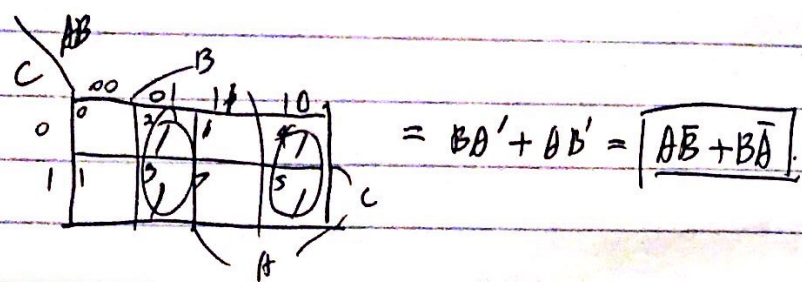 AB
C
B
00 01 11 10
0 0 2 1 6 4 1
1 1 3 1 7 5 1
C
A
= BA' + AB' = AB̅ + BA̅